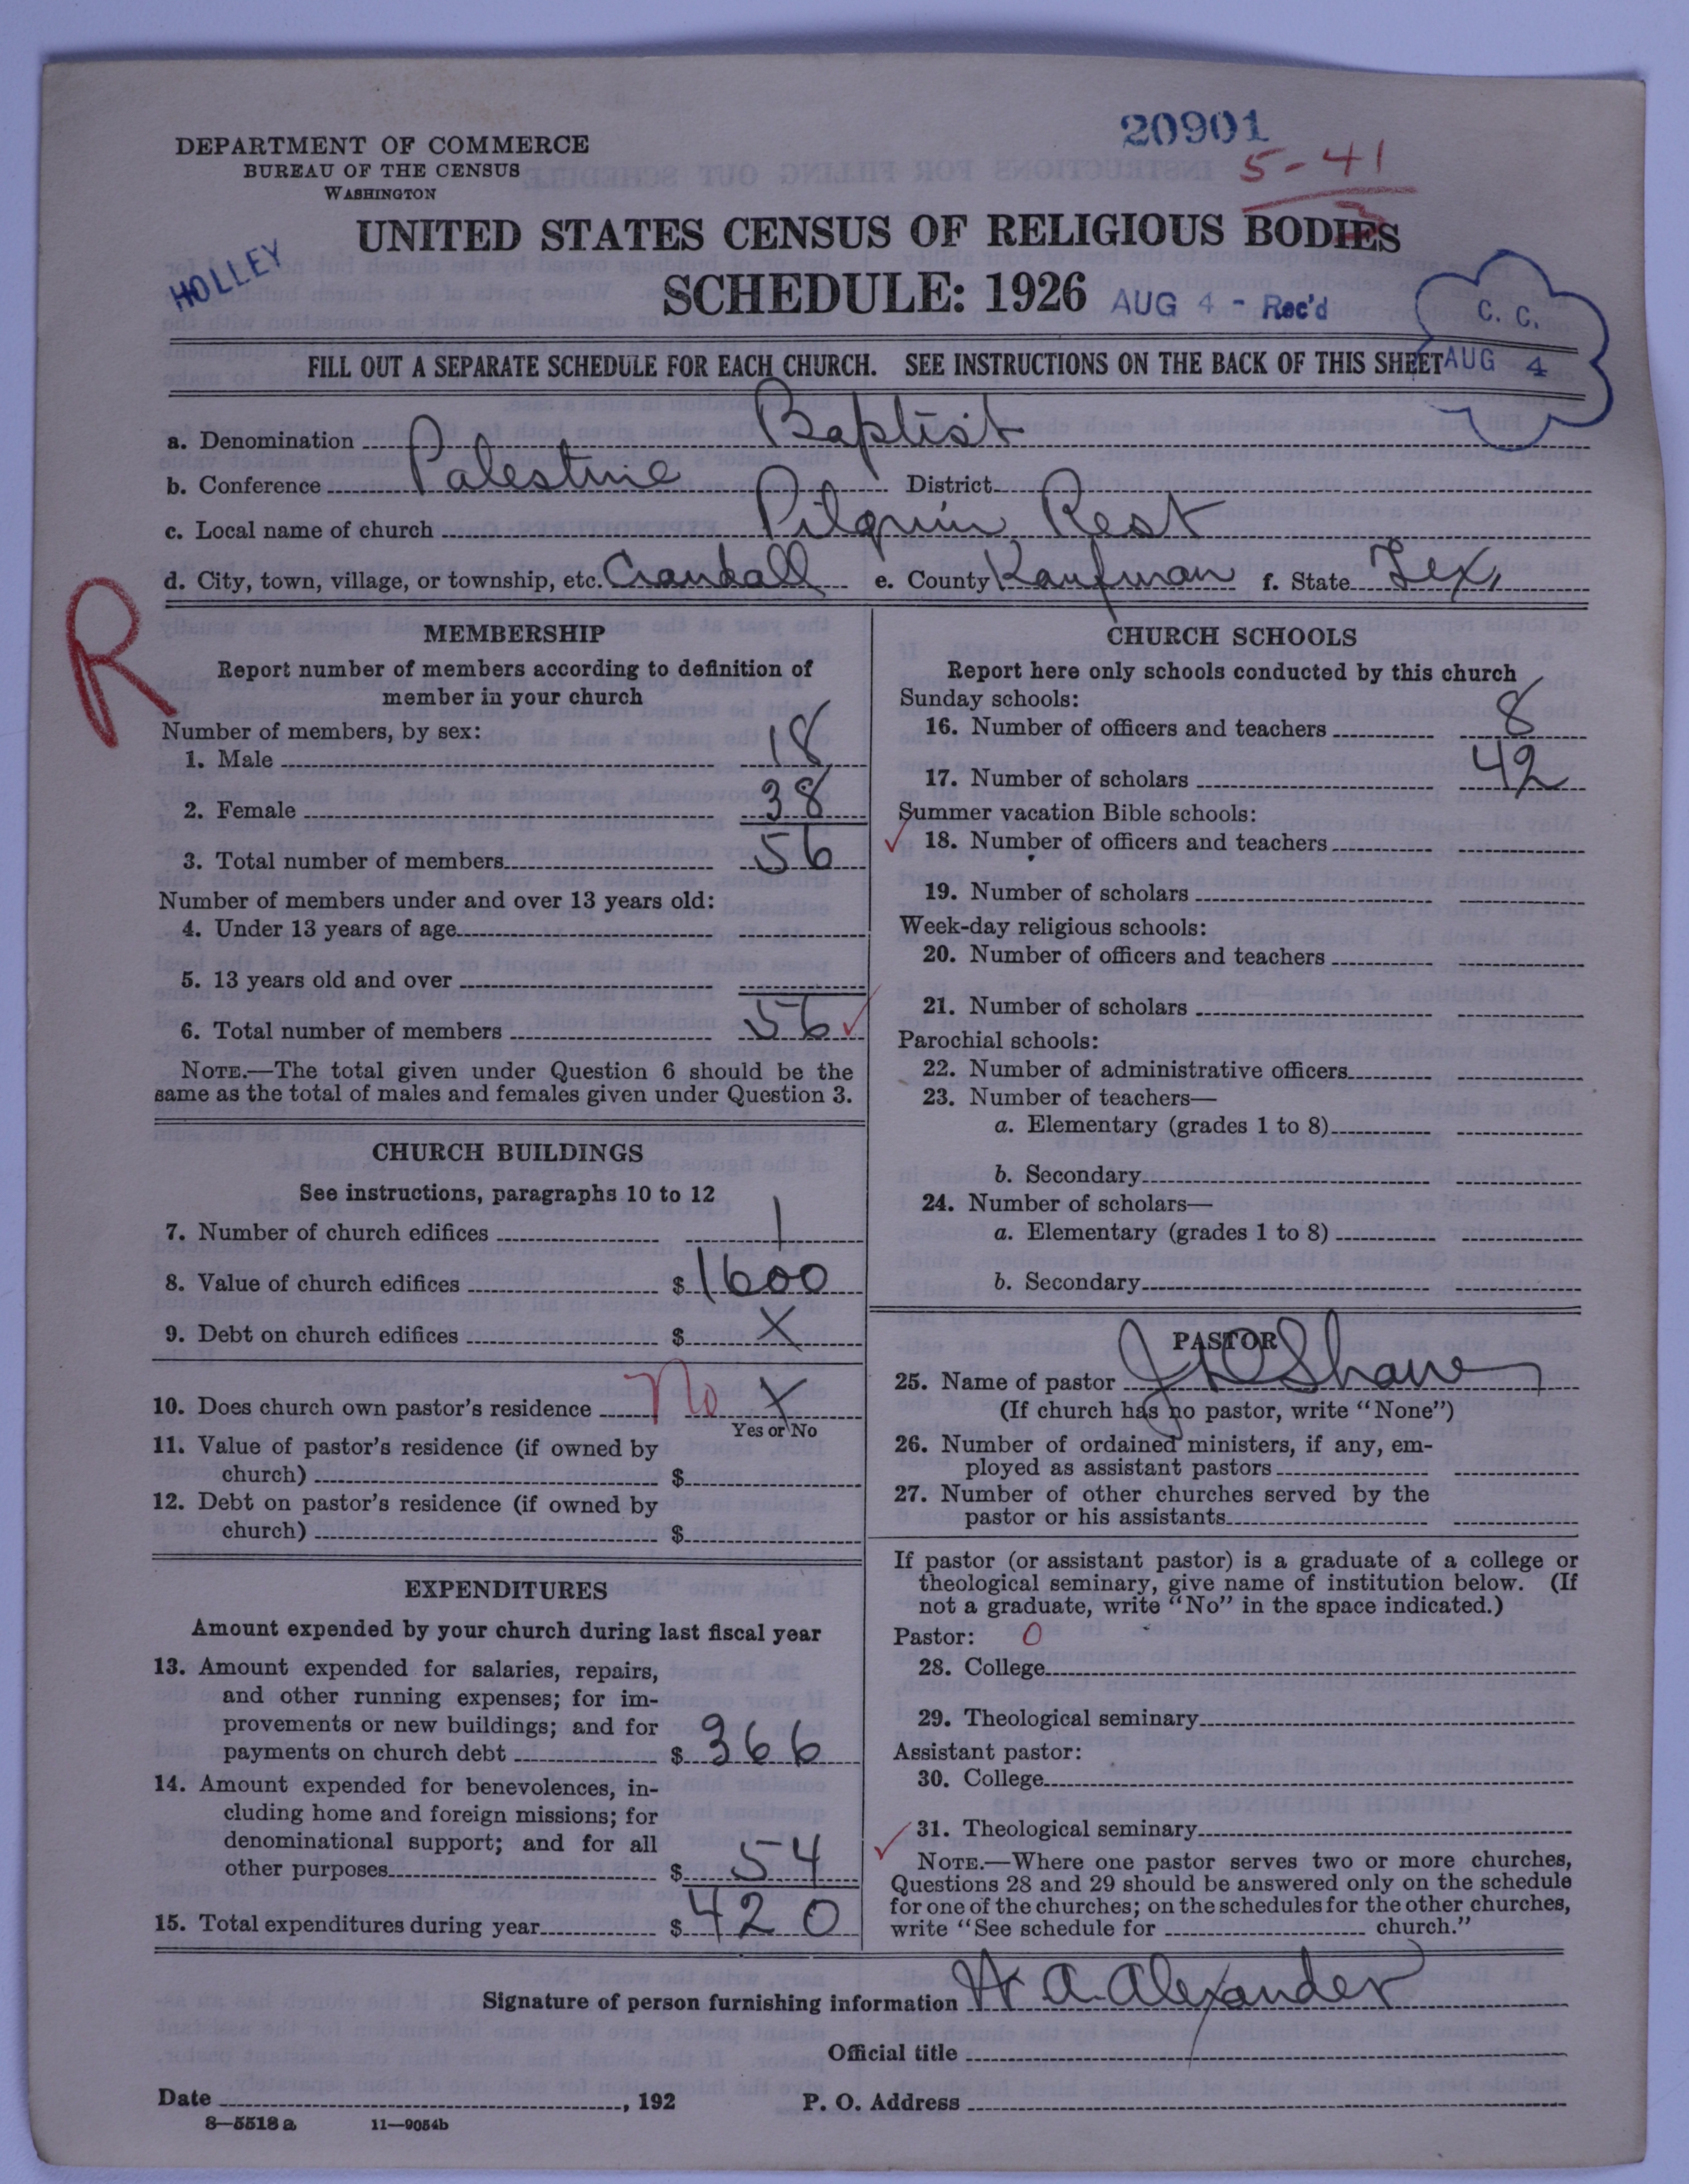 20901
5-41
3
DEPARTMENT OF COMMERCE
BUREAU OF THE CENSUS
WASHINGTON
UNITED STATES CENSUS OF RELIGIOUS BODIES
HOLLEY
SCHEDULE: 1926 AUG 4 - Rec'd
C. C.
AUG 4
FILL OUT A SEPARATE SCHEDULE FOR EACH CHURCH. SEE INSTRUCTIONS ON THE BACK OF THIS SHEET
a. Denomination Baptist
b. Conference Palestine District
c. Local name of church Pilgrim Rest
d. City, town, village, or township, etc. Crandall e. County Kaufman f. State Tex,
R
MEMBERSHIP
Report number of members according to definition of
member in your church
Number of members, by sex:
1. Male 18
2. Female 38
3. Total number of members 56
Number of members under and over 13 years old:
4. Under 13 years of age
5. 13 years old and over
6. Total number of members 56 ✓
NOTE.—The total given under Question 6 should be the
same as the total of males and females given under Question 3.
CHURCH BUILDINGS
See instructions, paragraphs 10 to 12
7. Number of church edifices 1
8. Value of church edifices $ 1600
9. Debt on church edifices $ X
10. Does church own pastor's residence No X
Yes or No
11. Value of pastor's residence (if owned by
church) $
12. Debt on pastor's residence (if owned by
church) $
EXPENDITURES
Amount expended by your church during last fiscal year
13. Amount expended for salaries, repairs,
and other running expenses; for im-
provements or new buildings; and for
payments on church debt $ 366
14. Amount expended for benevolences, in-
cluding home and foreign missions; for
denominational support; and for all
other purposes $ 54
15. Total expenditures during year $ 420
CHURCH SCHOOLS
Report here only schools conducted by this church
Sunday schools:
16. Number of officers and teachers 8
17. Number of scholars 42
Summer vacation Bible schools:
✓ 18. Number of officers and teachers
19. Number of scholars
Week-day religious schools:
20. Number of officers and teachers
21. Number of scholars
Parochial schools:
22. Number of administrative officers
23. Number of teachers—
a. Elementary (grades 1 to 8)
b. Secondary
24. Number of scholars—
a. Elementary (grades 1 to 8)
b. Secondary
PASTOR
25. Name of pastor J D Shaw
(If church has no pastor, write "None")
26. Number of ordained ministers, if any, em-
ployed as assistant pastors
27. Number of other churches served by the
pastor or his assistants
If pastor (or assistant pastor) is a graduate of a college or
theological seminary, give name of institution below. (If
not a graduate, write "No" in the space indicated.)
Pastor: 0
28. College
29. Theological seminary
Assistant pastor:
30. College
✓ 31. Theological seminary
NOTE.—Where one pastor serves two or more churches,
Questions 28 and 29 should be answered only on the schedule
for one of the churches; on the schedules for the other churches,
write "See schedule for church."
Signature of person furnishing information W A. Alexander
Official title
Date , 192 P. O. Address
8—5518 a 11—9054b